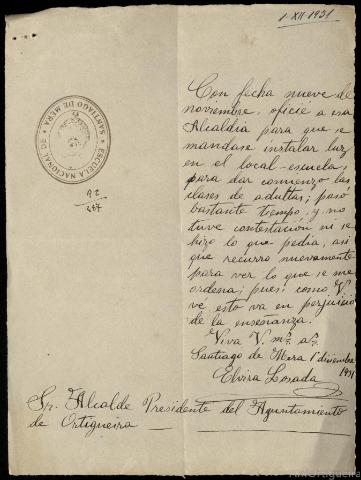 1-XII-1931
Con fecha nueve de
noviembre, oficié a esa
Alcaldía para que se
mandase instalar luz
en el local-escuela,
para dar comienzo las
clases de adultas; pasó
bastante tiempo, y no
tuve contestación ni se
hizo lo que pedía, así
que recurro nuevamente
para ver lo que se me
ordena; pues como V.
vé esto va en perjuicio
de la enseñanza.
Viva V. m.s a.s
Santiago de Mera 1 diciembre
1931
Elvira Losada
Sr. Alcalde Presidente del Ayuntamiento
de Ortigueira
ESCUELA NACIONAL DE
SANTIAGO DE MERA